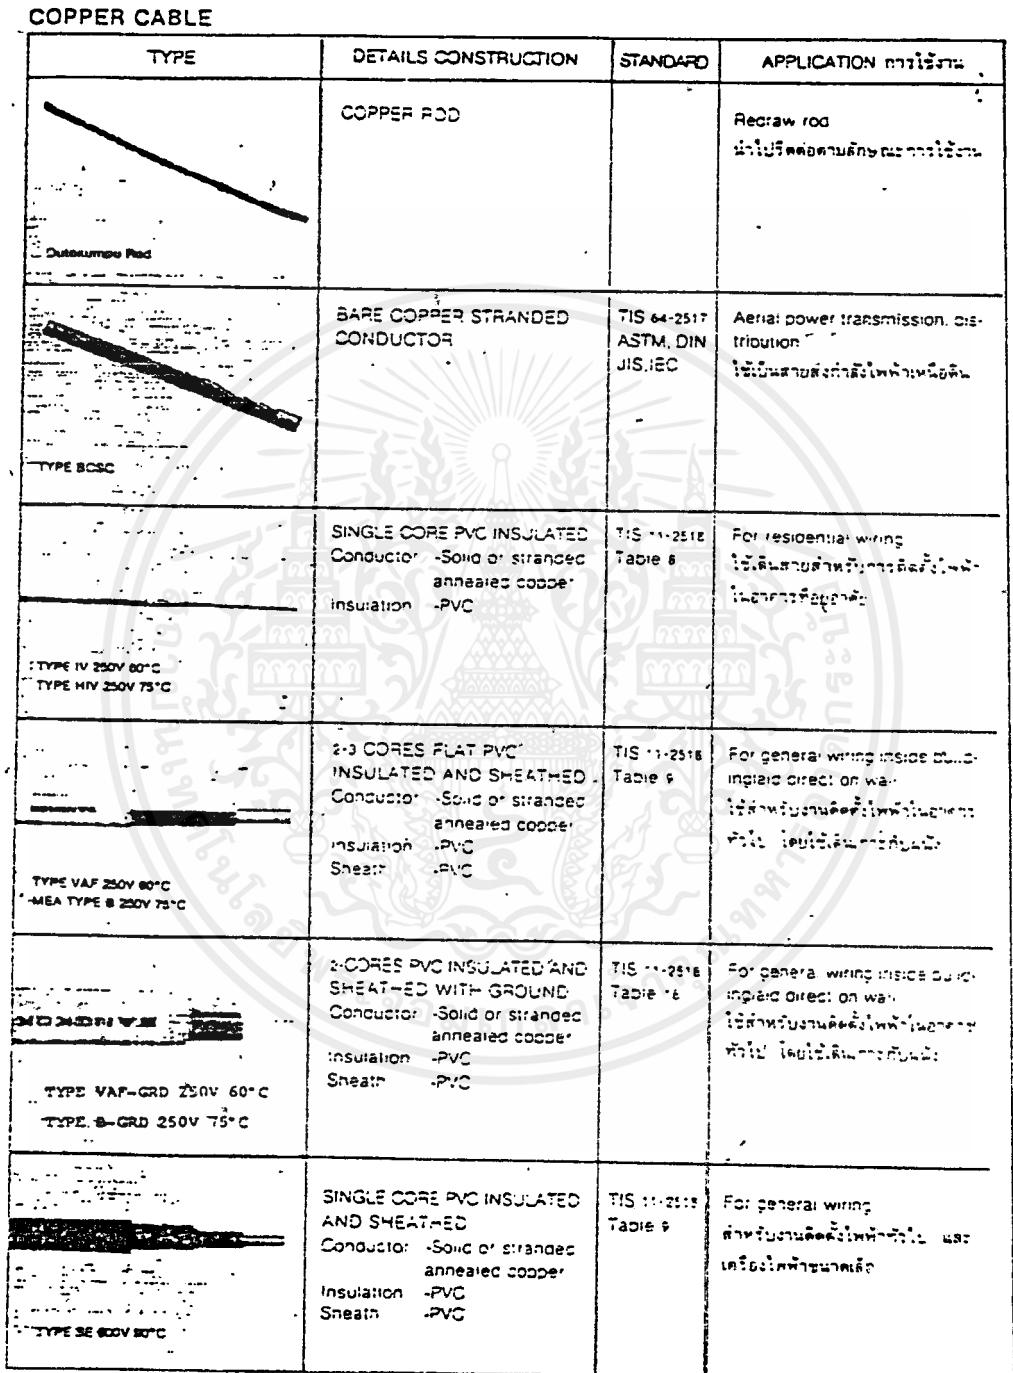 COPPER CABLE
TYPE
DETAILS CONSTRUCTION
STANDARD
APPLICATION การใช้งาน
Outokumpu Rod
COPPER ROD
Redraw rod
นำไปรีดต่อตามลักษณะการใช้งาน
TYPE BCSC
BARE COPPER STRANDED
CONDUCTOR
TIS 64-2517
ASTM, DIN
JIS, IEC
Aerial power transmission, dis-
tribution
ใช้เป็นสายส่งกำลังไฟฟ้าเหนือดิน
TYPE IV 250V 60°C
TYPE HIV 250V 75°C
SINGLE CORE PVC INSULATED
Conductor -Solid or stranded
annealed copper
Insulation -PVC
TIS 11-2518
Table 8
For residential wiring
ใช้เดินสายสำหรับการติดตั้งไฟฟ้า
ในอาคารที่อยู่อาศัย
TYPE VAF 250V 60°C
MEA TYPE B 250V 75°C
2-3 CORES FLAT PVC
INSULATED AND SHEATHED
Conductor -Solid or stranded
annealed copper
Insulation -PVC
Sheath -PVC
TIS 11-2518
Table 9
For general wiring inside build-
ing laid direct on wall
ใช้สำหรับงานติดตั้งไฟฟ้าในอาคาร
ทั่วไป โดยใช้เดินเกาะกับผนัง
TYPE VAF-GRD 250V 60°C
TYPE B-GRD 250V 75°C
2-CORES PVC INSULATED AND
SHEATHED WITH GROUND
Conductor -Solid or stranded
annealed copper
Insulation -PVC
Sheath -PVC
TIS 11-2518
Table
For general wiring inside build-
ing laid direct on wall
ใช้สำหรับงานติดตั้งไฟฟ้าในอาคาร
ทั่วไป โดยใช้เดินเกาะกับผนัง
TYPE SE 600V
SINGLE CORE PVC INSULATED
AND SHEATHED
Conductor -Solid or stranded
annealed copper
Insulation -PVC
Sheath -PVC
TIS 11-2518
Table 9
For general wiring
สำหรับงานติดตั้งไฟฟ้าทั่วไป และ
เครื่องไฟฟ้าขนาดเล็ก